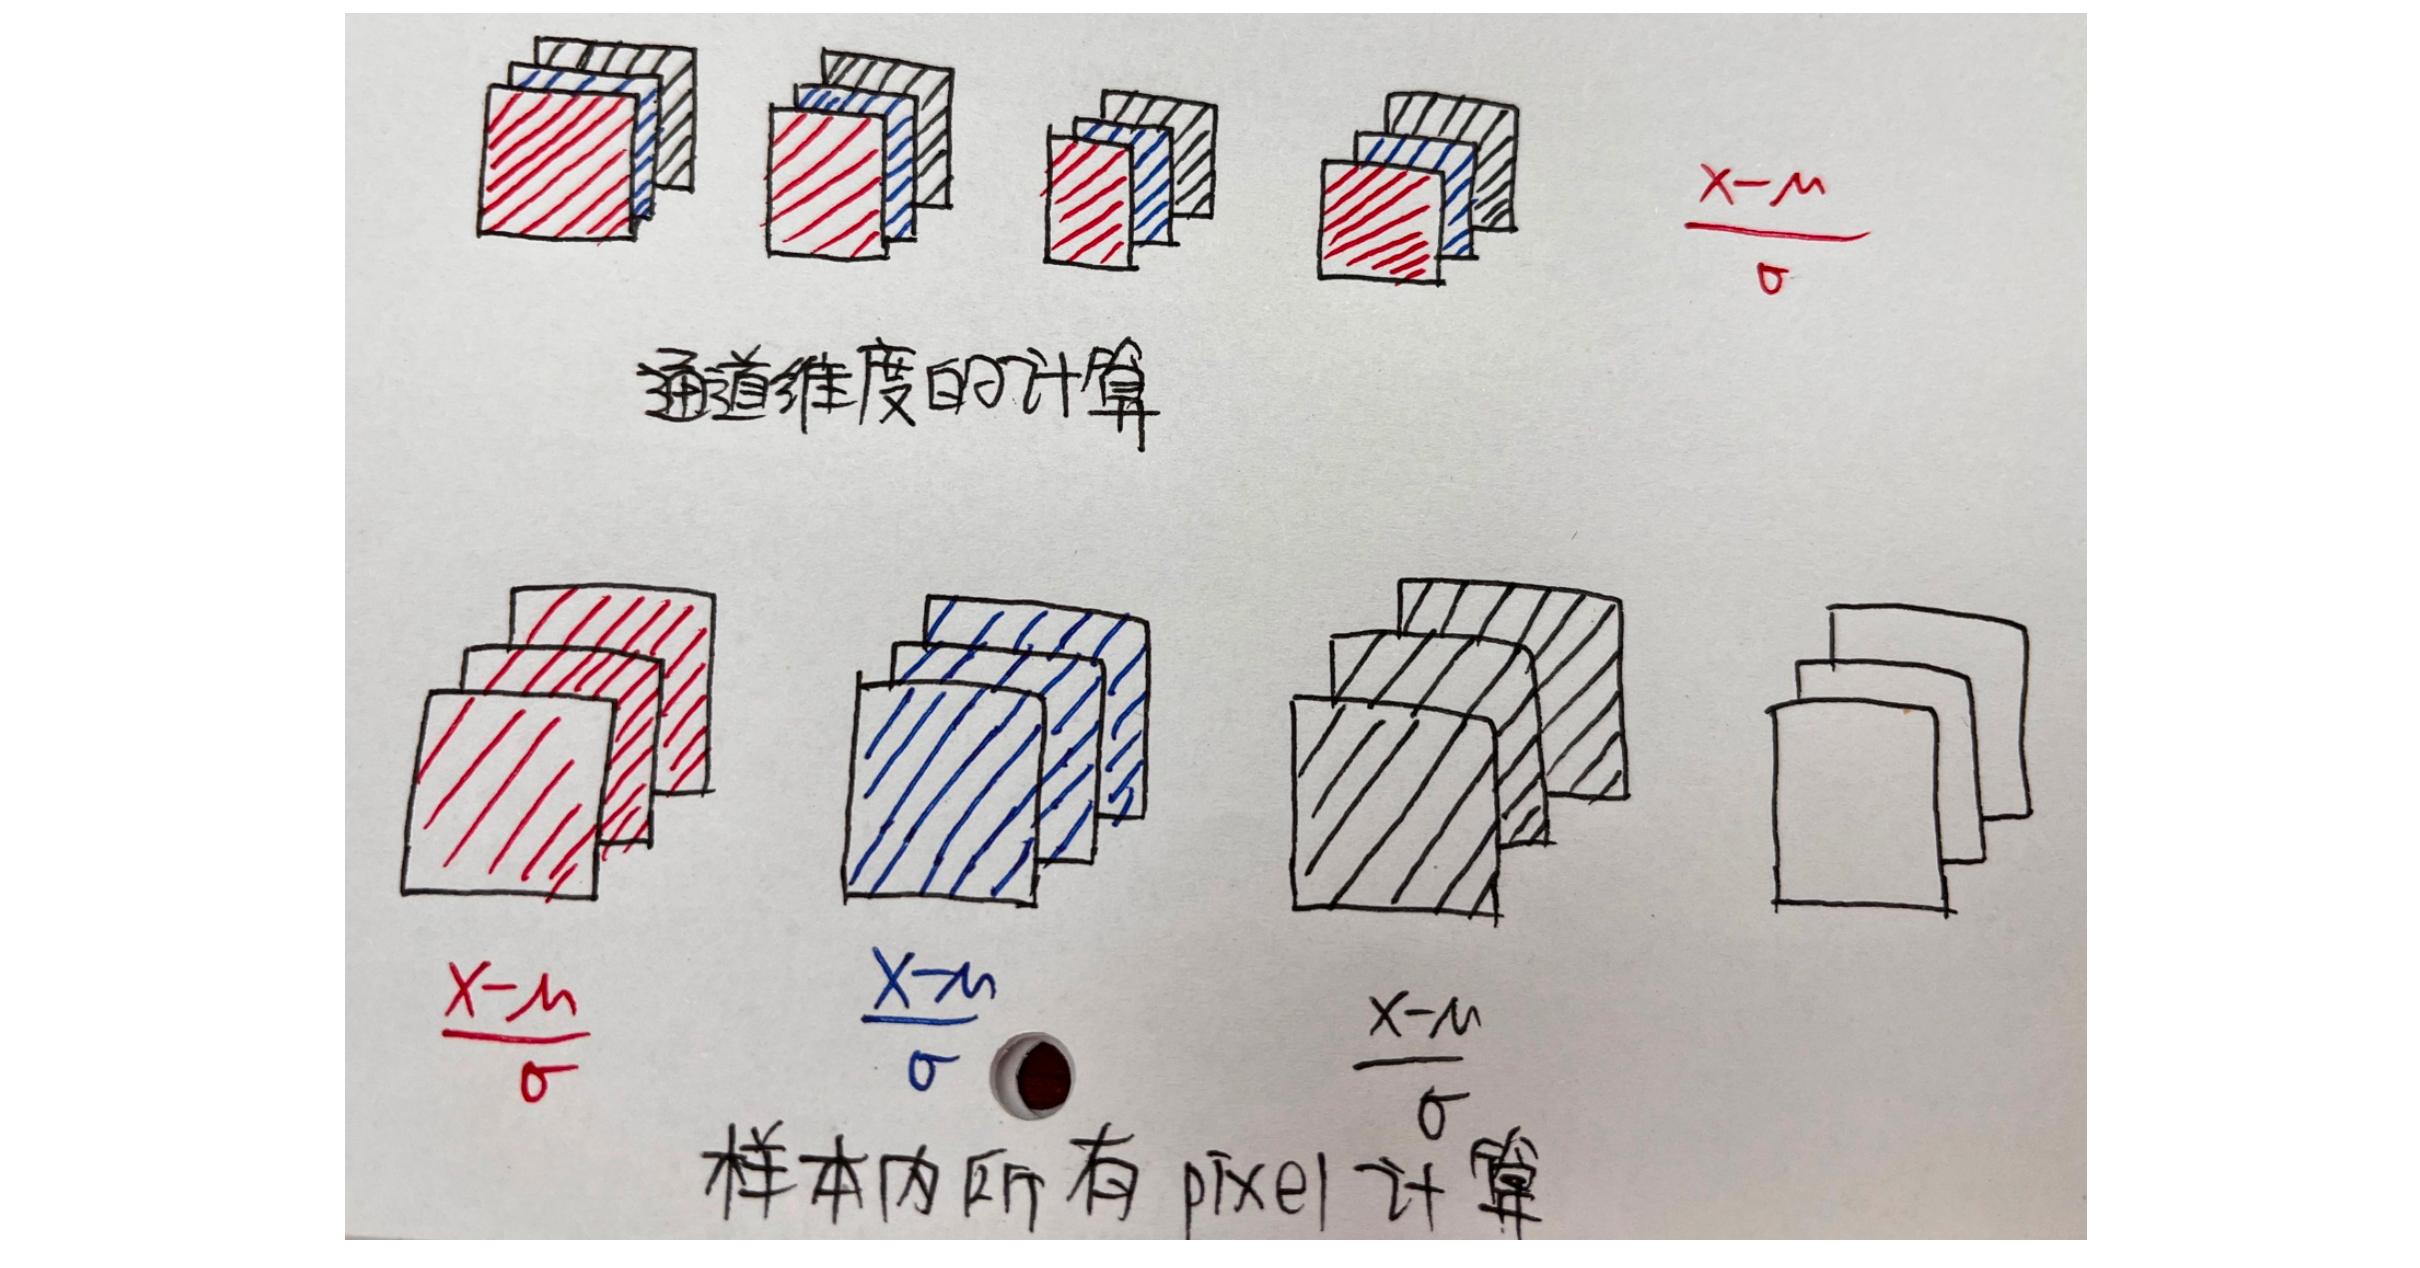 x-μ
σ
通道维度的计算
x-μ
σ
x-μ
σ
x-μ
σ
样本内所有pixel计算